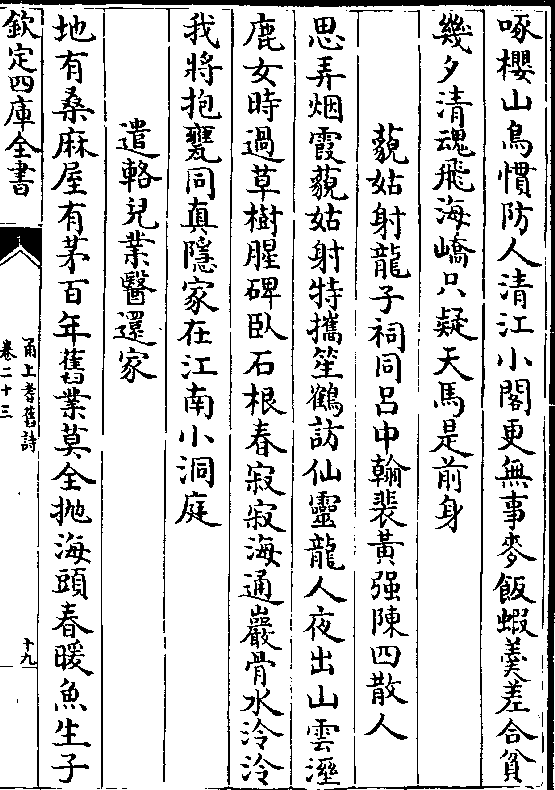 啄櫻山鳥慣防人清江小閣更無事麥飯蝦羮差合貧
幾夕清魂飛海嶠只疑天馬是前身
藐姑射龍子祠同呂中翰裴黃强陳四散人
思弄烟霞藐姑射特攜笙鶴訪仙靈龍人夜出山雲溼
鹿女時過草樹腥碑臥石根春寂寂海通巖骨水泠泠
我將抱甕同真隱家在江南小洞庭
遣輅兒業醫還家
地有桑麻屋有茅百年舊業莫全抛海頭春暖魚生子
欽定四庫全書
甬上耆舊詩
卷二十三
十九